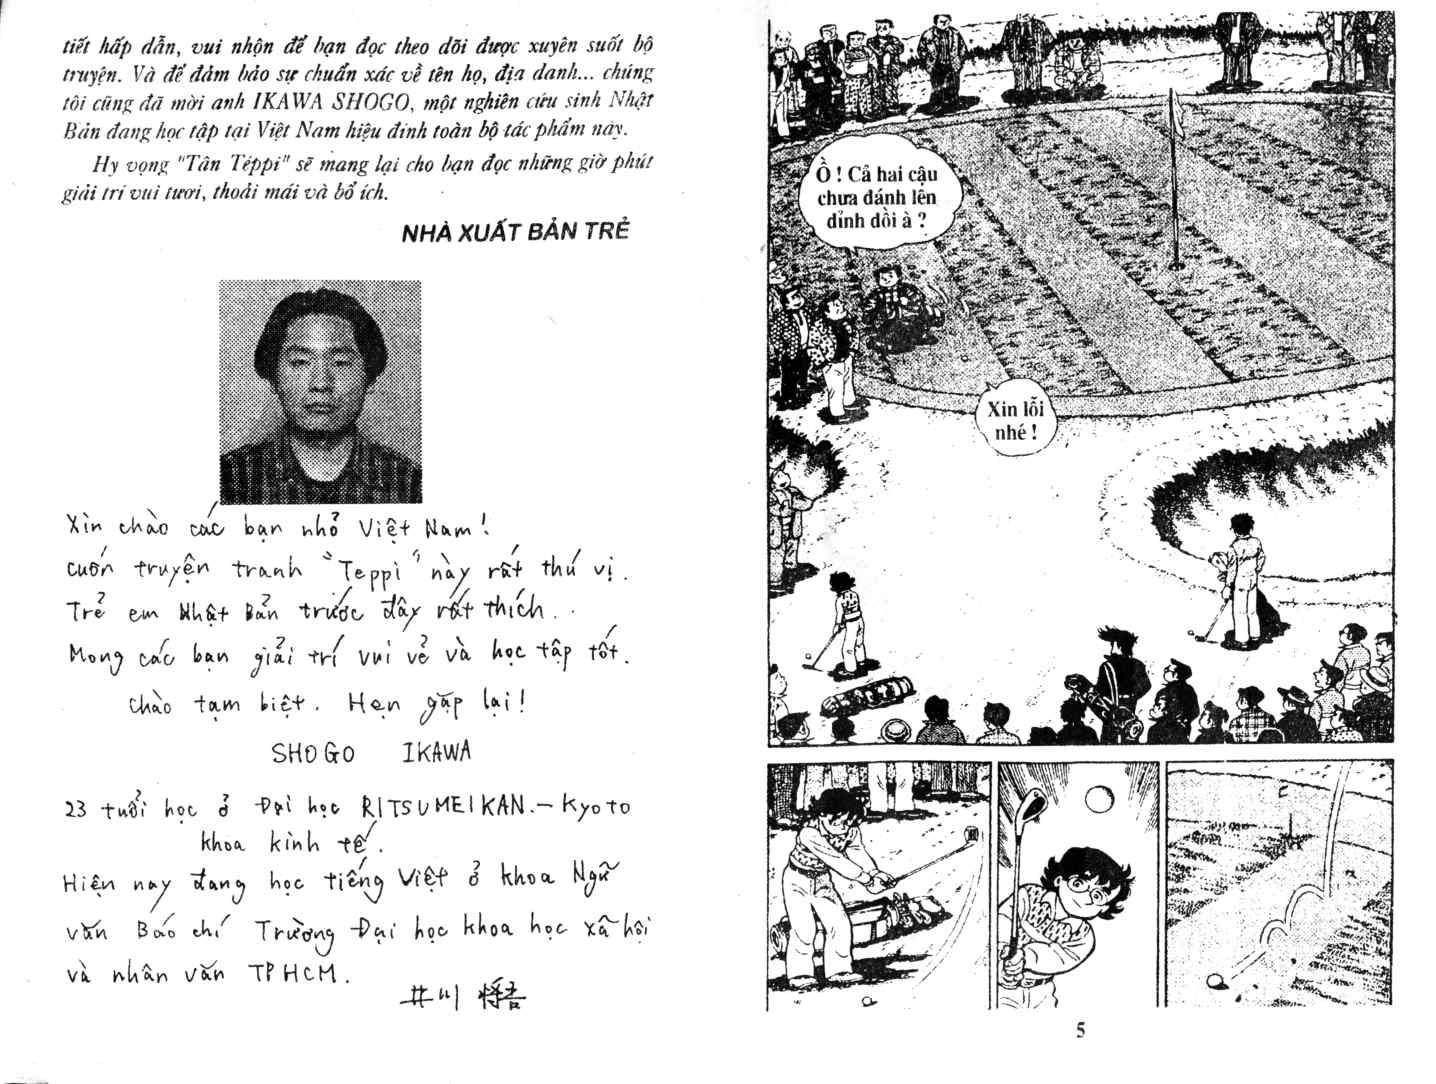 tiết hấp dẫn, vui nhộn để bạn đọc theo dõi được xuyên suốt bộ
truyện. Và để đảm bảo sự chuẩn xác về tên họ, địa danh... chúng
tôi cũng đã mời anh IKAWA SHOGO, một nghiên cứu sinh Nhật
Bản đang học tập tại Việt Nam hiệu đính toàn bộ tác phẩm này.
Hy vọng "Tân Téppi" sẽ mang lại cho bạn đọc những giờ phút
giải trí vui tươi, thoải mái và bổ ích.
NHÀ XUẤT BẢN TRẺ
Xin chào các bạn nhỏ Việt Nam!
cuốn truyện tranh "Teppi" này rất thú vị.
Trẻ em Nhật Bản trước đây rất thích.
Mong các bạn giải trí vui vẻ và học tập tốt.
chào tạm biệt. Hẹn gặp lại!
SHOGO IKAWA
23 tuổi học ở Đại học RITSUMEIKAN.-Kyoto
khoa kinh tế.
Hiện nay đang học tiếng Việt ở khoa Ngữ
văn Báo chí Trường Đại học khoa học xã hội
và nhân văn TPHCM.
井川 将吾
Ồ ! Cả hai cậu
chưa đánh lên
đỉnh đồi à ?
Xin lỗi
nhé !
5